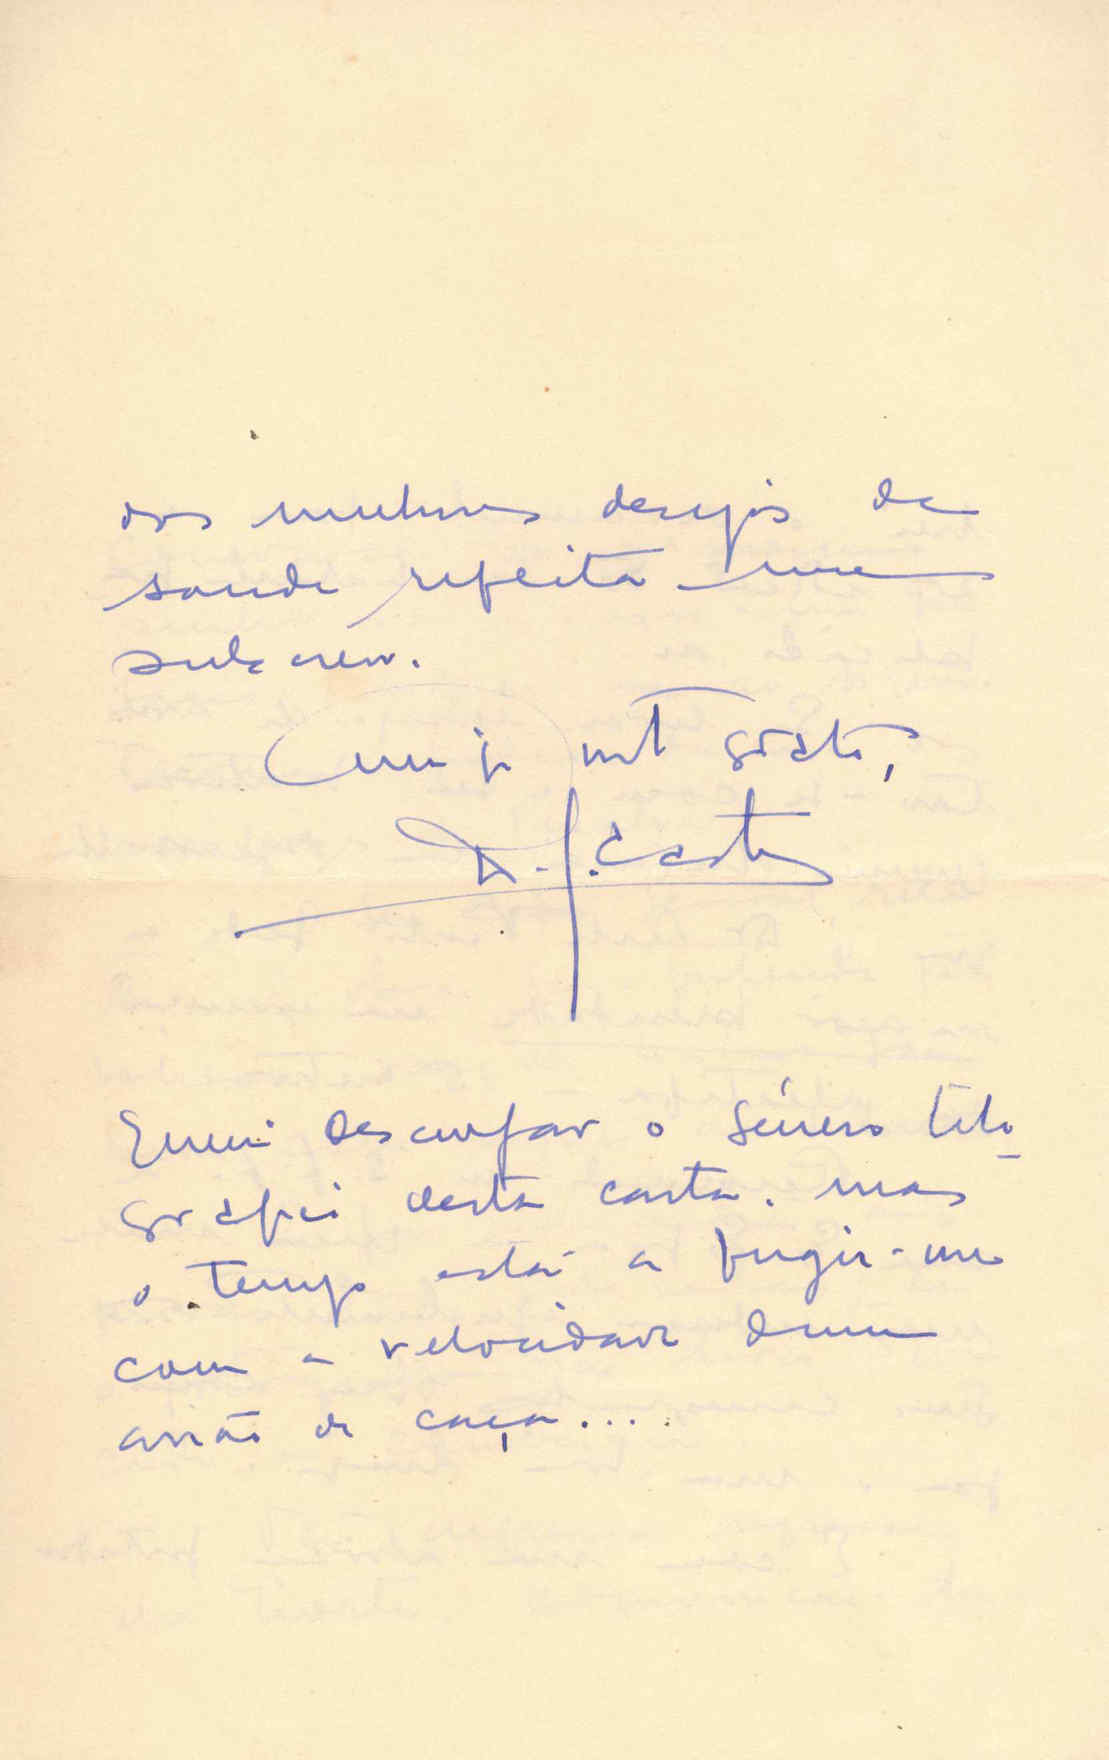 dos melhores desejos de
saude refeita me
subscrevo.
Amigo mt grato,
Castro
Queira desculpar o género tele
gráfico desta carta. mas
o tempo está a fugir-me
com a velocidade dum
avião de caça....